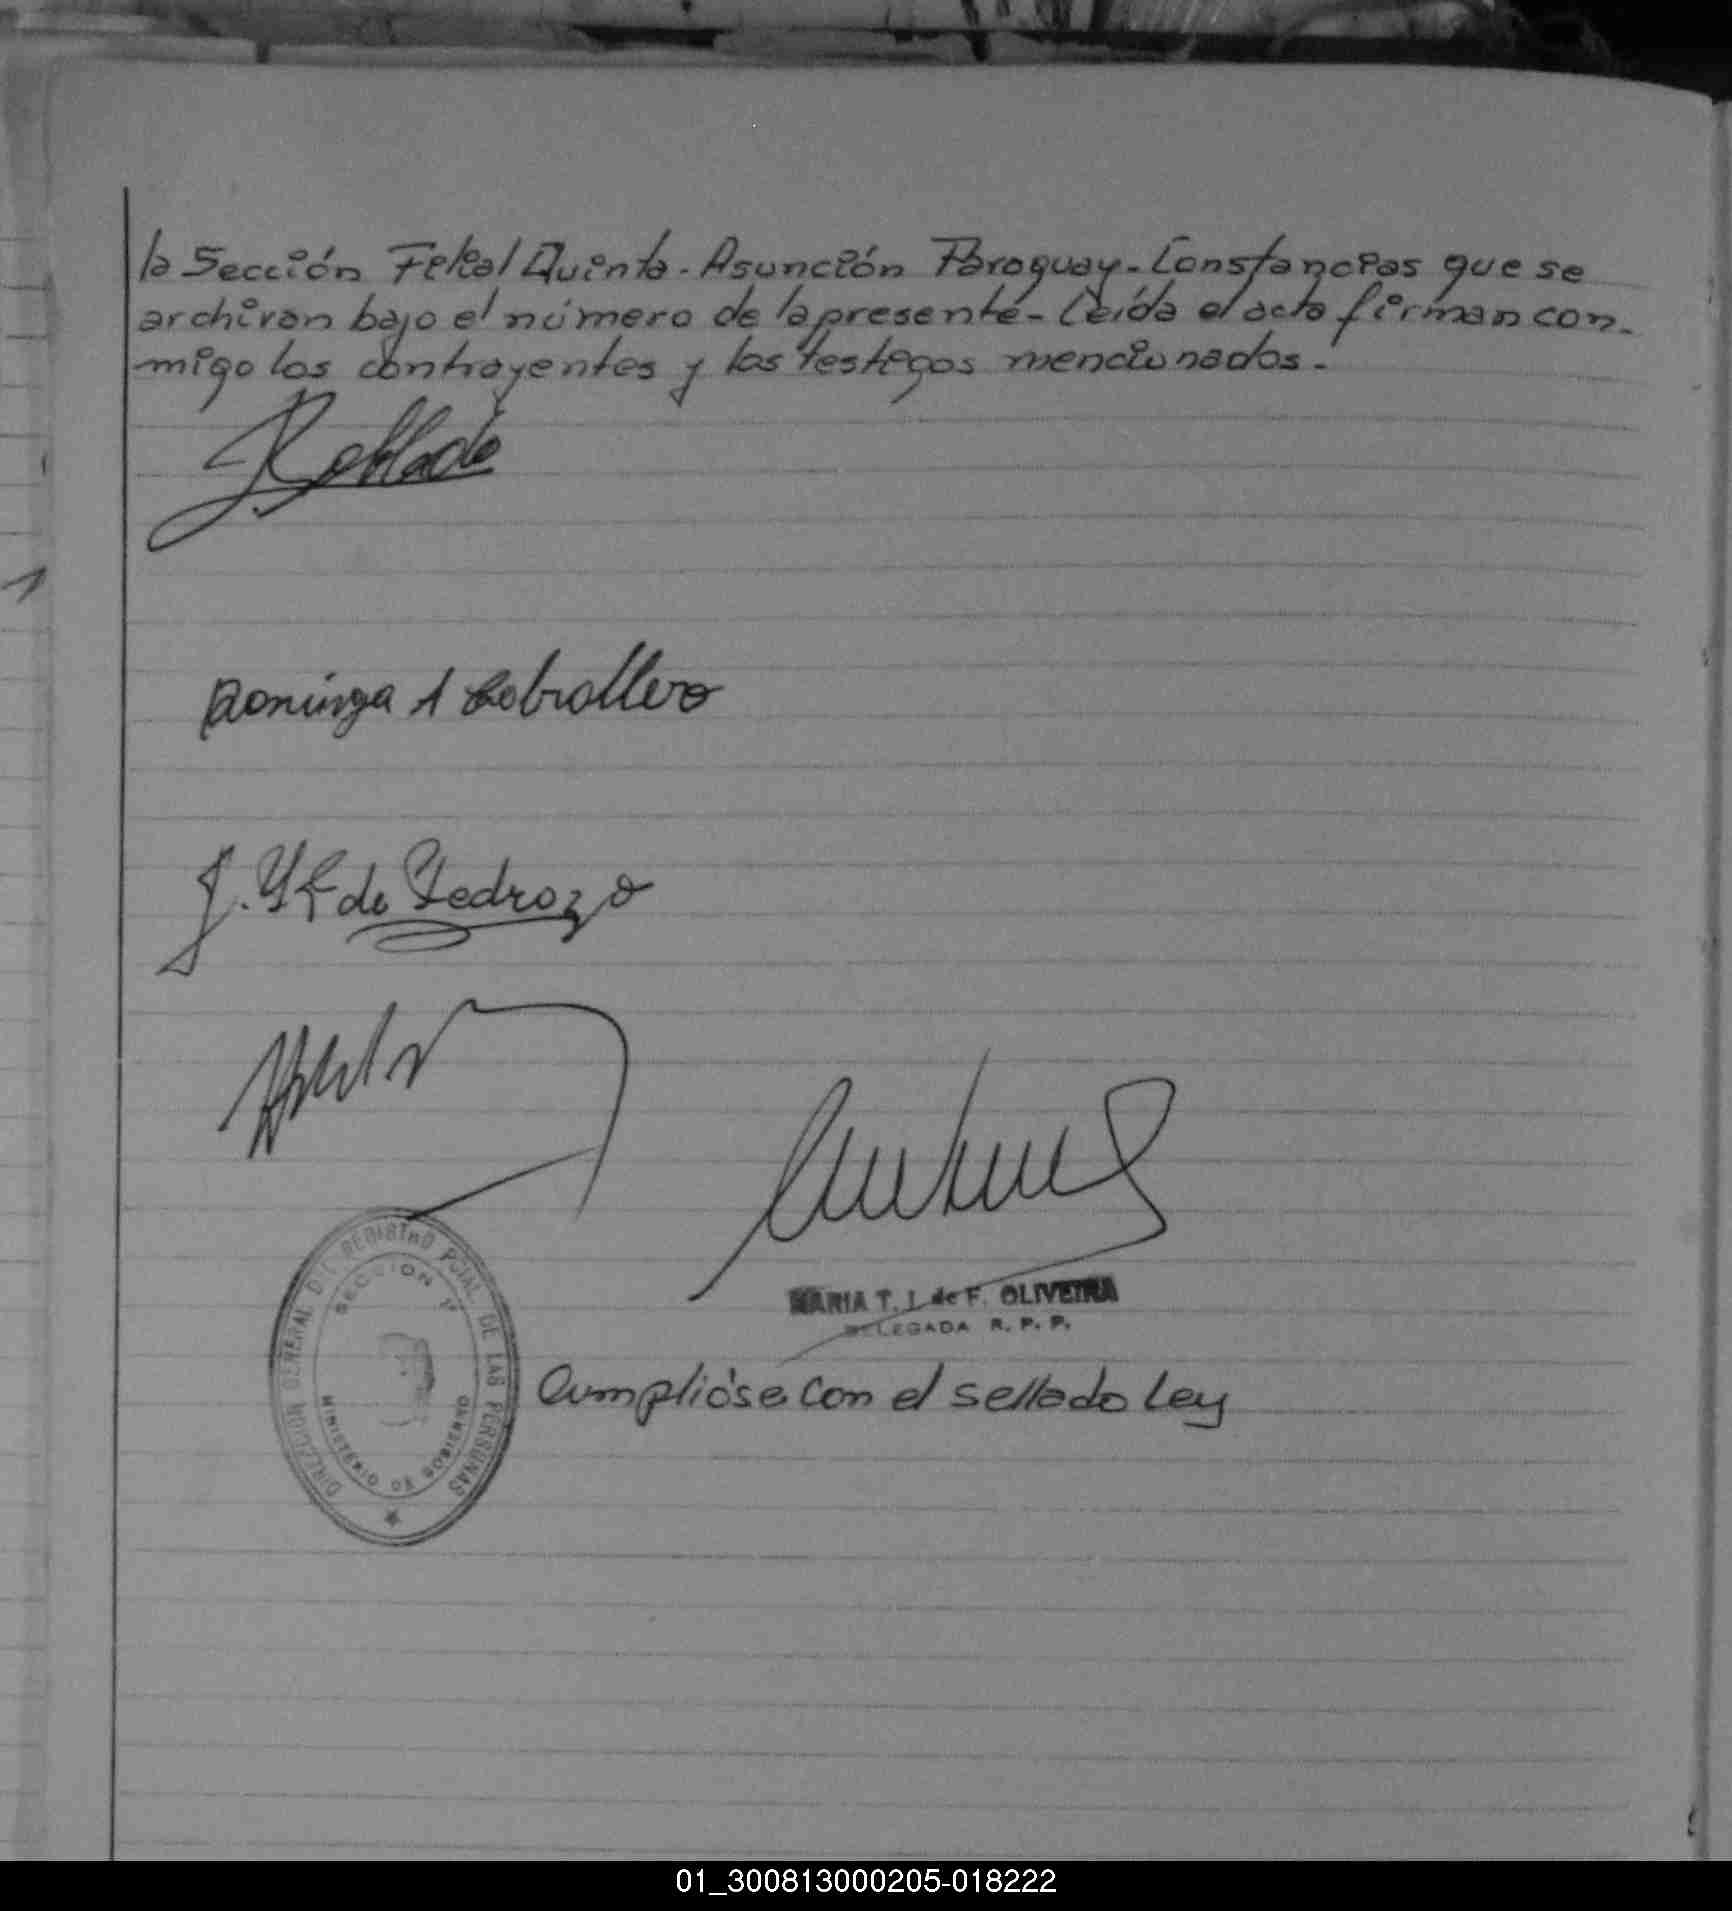 la Sección Filial Quinta - Asunción Paraguay - Constancias que se
archivan bajo el número de la presente - Leída el acta firman con-
migo los contrayentes y los testigos mencionados.-
Dominga A Caballero
de Pedrozo
DIRECCION GENERAL DEL REGISTRO PCIAL DE LAS PERSONAS
SECCION 1ª
MINISTERIO DE GOBIERNO
MARIA T. I. de F. OLIVEIRA
DELEGADA R. P. P.
Cumplióse con el sellado Ley
01_300813000205-018222